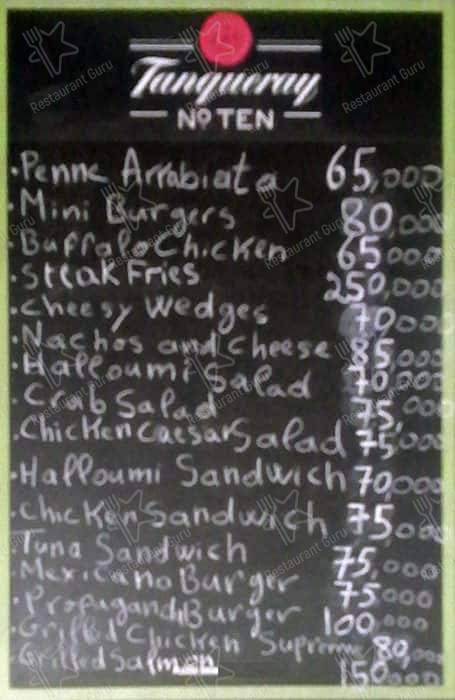 Tanqueray
Nº TEN
.Penne Arrabiata 65,000
.Mini Burgers 80,000
.Buffalo Chicken 65000
.Steak Fries 250,000
.Cheesy Wedges 70000
.Nachos and Cheese 85,000
.Halloumi Salad 70,000
.Crab Salad 75,000
.Chicken Caesar Salad 75,000
.Halloumi Sandwich 70,000
.Chicken Sandwich 75000
.Tuna Sandwich 75,000
.Mexicano Burger 75000
.Propagand Burger 100,000
.Grilled Chicken Supreme 80,000
.Grilled Salmon 150000
Restaurant Guru